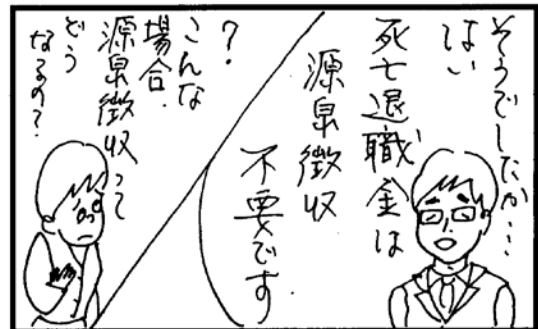 そうでしたか…
はい
死亡退職金は
源泉徴収
不要です
？
こんな
場合.
源泉徴収って
どう
なるの？